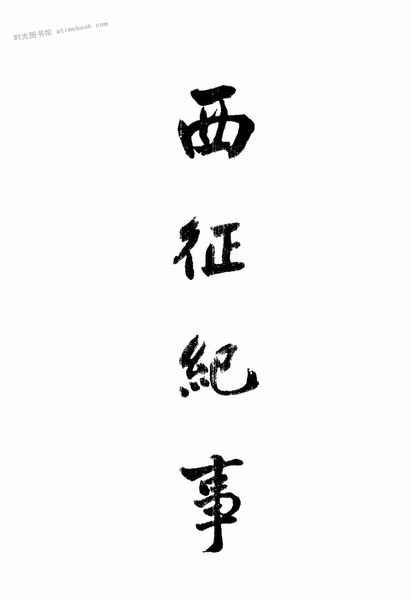 时光图书馆 atimebook com
西征紀事